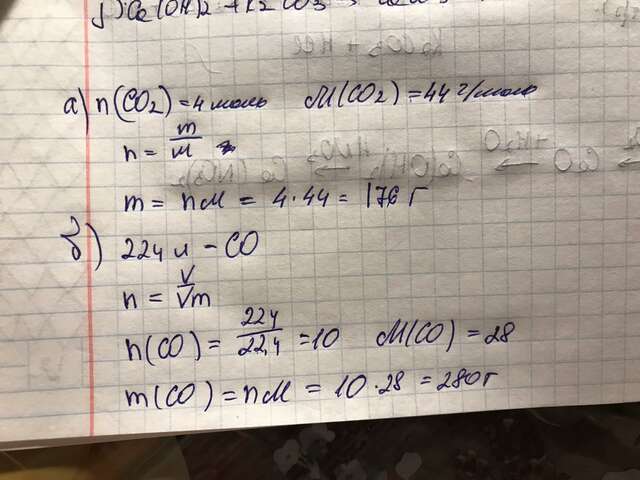 а) n(CO₂) = 4 моль M(CO₂) = 44 г/моль
n = m/M
m = nM = 4·44 = 176 г
б) 224 л - CO
n = V/Vm
n(CO) = 224/22,4 = 10 M(CO) = 28
m(CO) = nM = 10·28 = 280 г